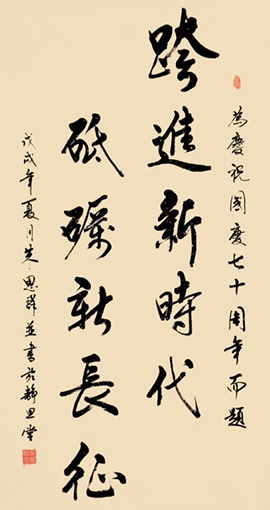 為慶祝國慶七十周年而題
跨進新時代
砥礪新長征
戊戌年夏月吳思辉並書於靜思堂